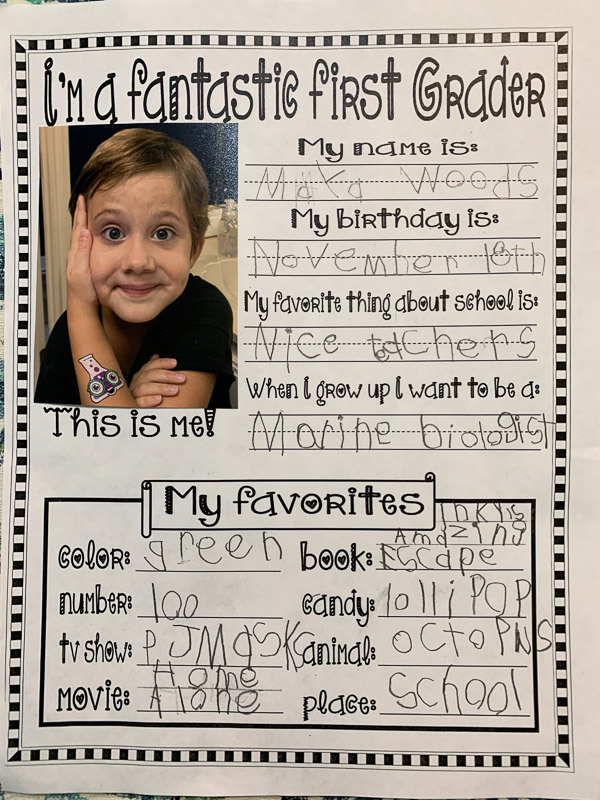 I'm a fantastic first Grader
My name is:
Maka Woods
My birthday is:
November 18th
My favorite thing about school is:
Nice teachers
When I grow up I want to be a:
Marine biologist
This is me!
My favorites
color: green
number: 100
tv show: PJMasks
movie: Home
Alone
Inkyis
Amazing
book: Escape
candy: lolliPOP
animal: octopus
place: School